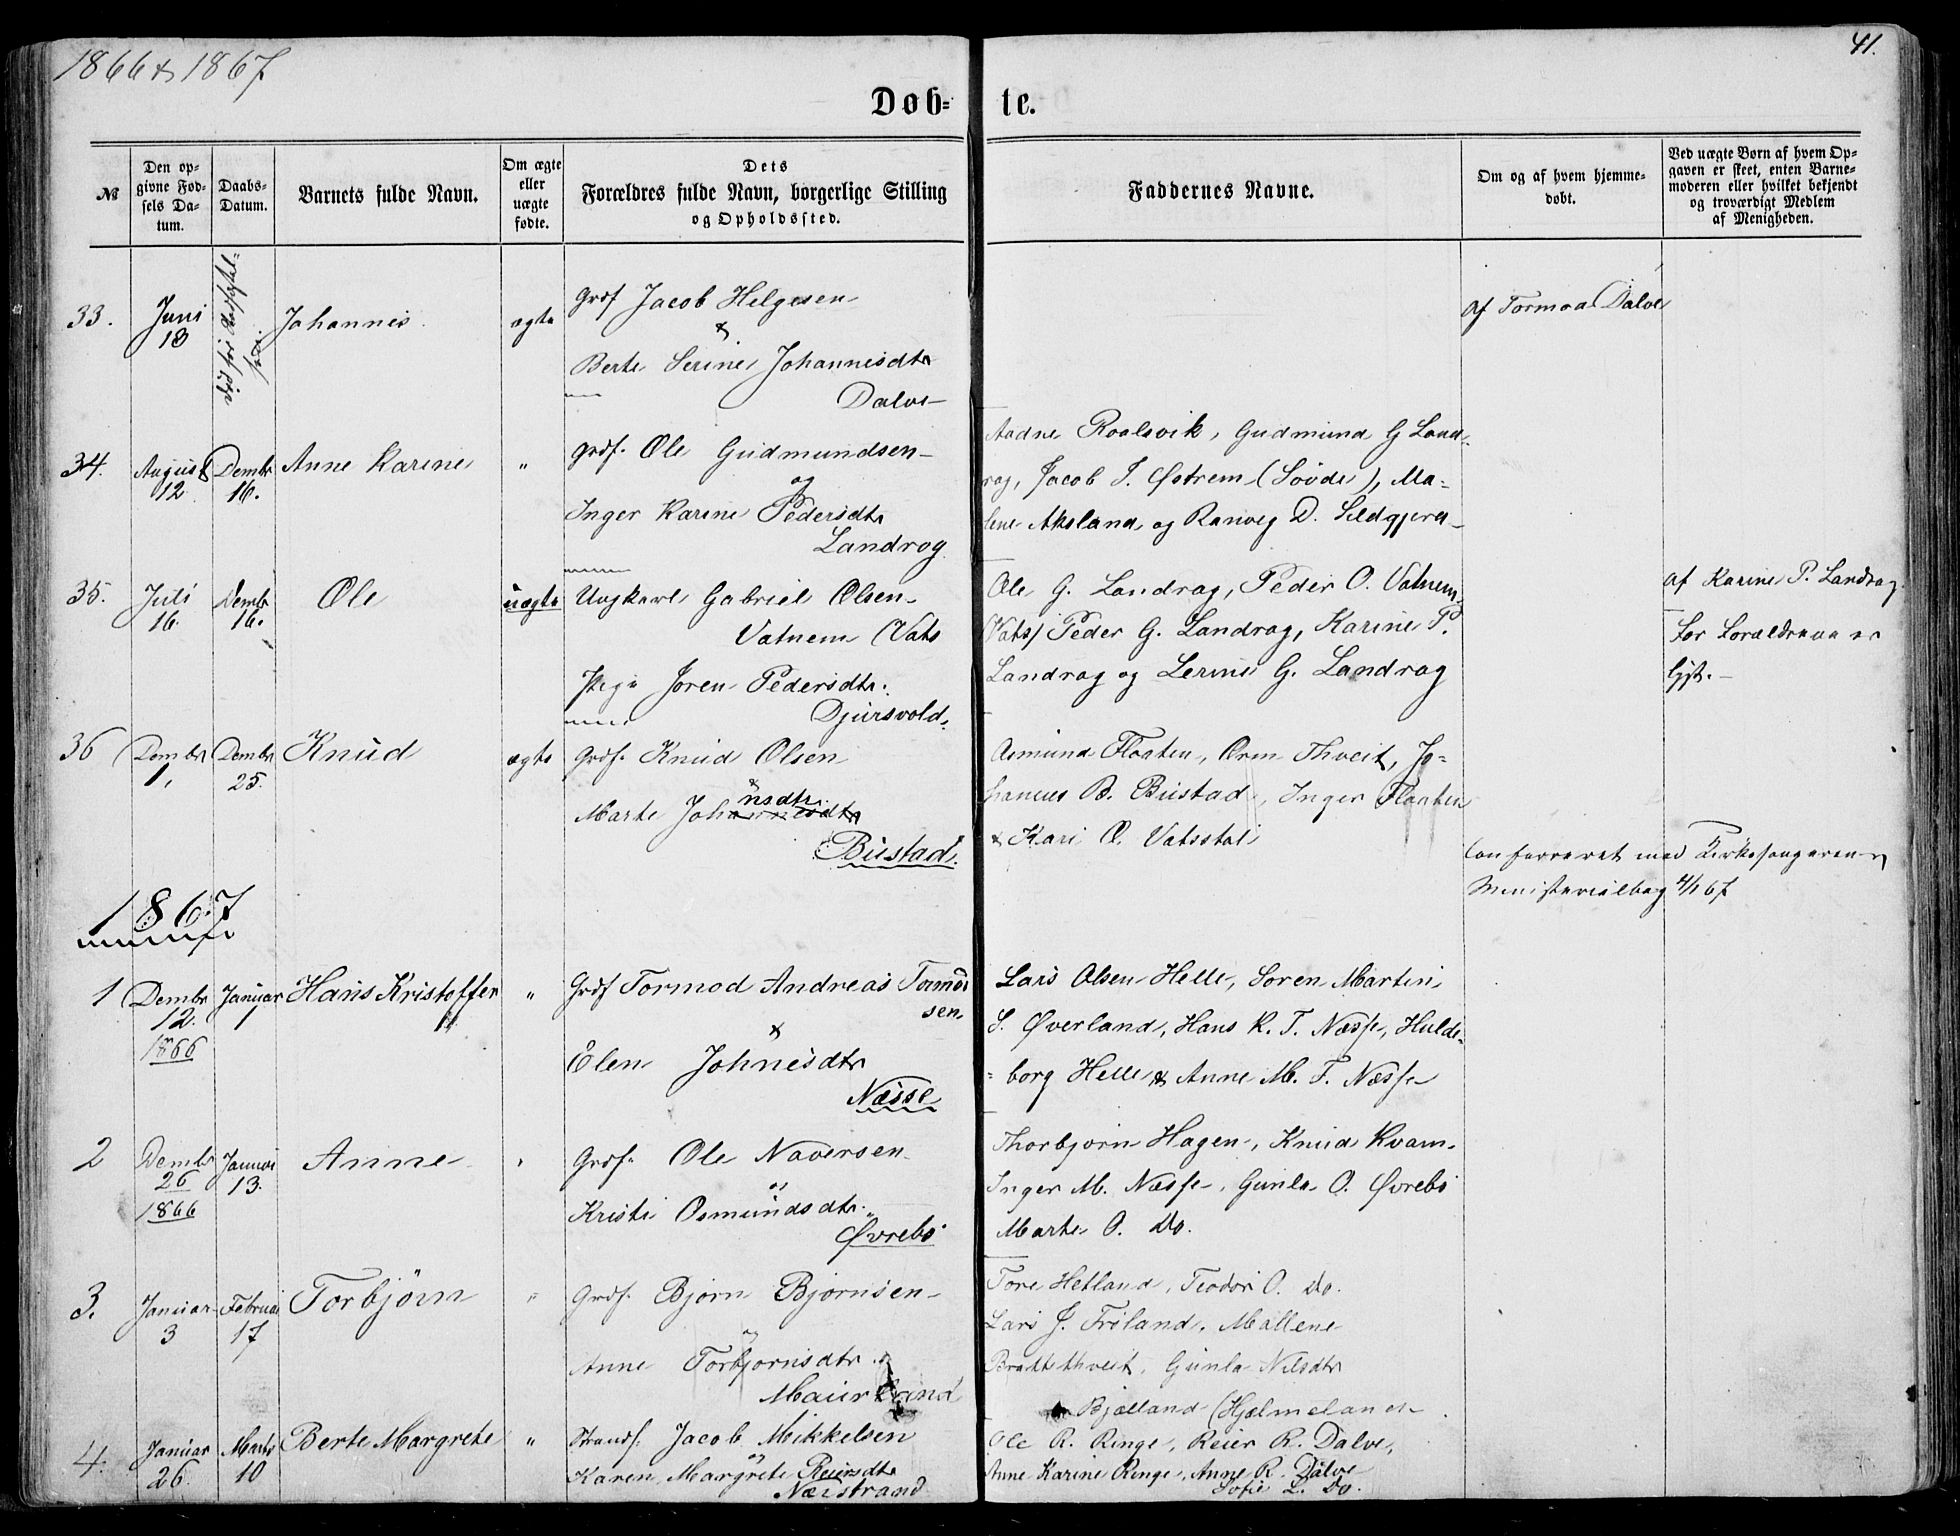 1866 & 1867
41.
Døb= te.
№
Den op-
givne Fød-
sels Da-
tum.
Daabs-
Datum.
Barnets fulde Navn.
Om ægte
eller
uægte
fødte.
Dets
Forældres fulde Navn, borgerlige Stilling
og Opholdssted.
Faddernes Navne.
Om og af hvem hjemme-
døbt.
Ved uægte Børn af hvem Op-
gaven er skeet, enten Barne-
moderen eller hvilket bekjendt
og troværdigt Medlem
af Menigheden.
33. Juni 18 Johannes ægte
Grdf Jacob Helgesen
&
Berte Serine Johannesdtr
Dalve
af Tormod Dalve
34. August 12 Dembr 16. Anne Karine "
Grdf. Ole Gudmundsen
og
Inger Karine Pedersdtr
Landrog
Aadne Roalsvik, Gudmund G Land-
rog, Jacob J. Østrem (Søvde), Ma-
lene Aksland og Ranveg D. Sildgjerd
35. Juli 16. Dembr 16. Ole uægte
Ungkarl Gabriel Olsen
Vatnem (Vats
Pige Joren Pedersdtr.
Djursvold.
Ole G. Landrog, Peder O. Vatnem
(Vats) Peder G. Landrog, Karine P.
Landrog og Serine G. Landrog
af Karine P. Landrog
for Forældrene er
lyst.
36 Dembr 1. Dembr 25. Knud ægte
Grdf. Knud Olsen
&
Marte Johannesdtr nsdtr.
Bustad.
Asmund Floaten, Orm Thveit, Jo-
hannes B. Bustad, Inger Floaten
& Kari O. Vatsstøl
Conferreret med Kirkesangerens
Ministerialbog 4/1 67
1867
1 Dembr 12. 1866 Januar 1 Hans Kristoffer "
Grdf Tormod Andreas Tormod
sen.
&
Elen Johnesdtr
Næsse
Lars Olsen Helle, Soren Martin
S. Øverland, Hans K. T. Næsse, Hulde-
borg Helle & Anne M. T. Næsse
2 Dembr 26 1866 Januar 13. Anne "
Grdf. Ole Naversen
og
Kristi Osmundsdtr.
Øvrebø
Thorbjorn Hagen, Knud Kvam
Inger M. Næsse, Gunla O. Øvrebø
Marte O. Do.
3. Januar 3 Februar 17 Torbjørn "
Grdf. Bjorn Bjornsen
og
Anne Torbjornsdtr.
Tore Hetland, Teodor O. Do.
Lars J. Friland. Mallene
Brattethveit, Gunla Nilsdtr
Bjelland (Hjelmeland
4. Januar 26. Marts 10 Berte Margrete "
Strands. Jacob Mikkelsen
og
Karen Margrete Reiersdtr
Nærstrand
Ole R. Ringe, Reier R. Dalve,
Anne Karine Ringe, Anne R. Dalve
Sofie L. Do.